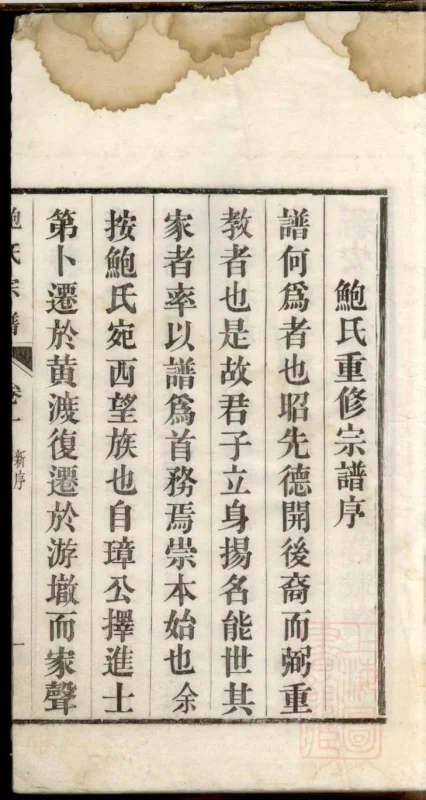 鮑氏重修宗譜序
譜何爲者也昭先德開後裔而弼重
教者也是故君子立身揚名能世其
家者率以譜爲首務焉崇本始也余
按鮑氏宛西望族也自璋公擇進士
第卜遷於黃渡復遷於游墩而家聲
鮑氏宗譜
卷一
新序
一